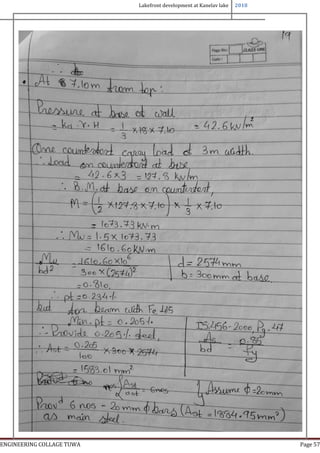 Lakefront development at Kanelav lake 2018
Page No:
CLASS MATE
Date:
19
• At 7.10m from top:
Pressure at base of wall
= ka · γ · H = 1/3 × 18 × 7.10 = 42.6 kN/m²
One counterfort carry load of 3m width.
∴ Load on counterfort at base
= 42.6 × 3 = 127.8 kN/m
∴ B.M. at base on counterfort,
M = (1/2 × 127.8 × 7.10) × 1/3 × 7.10
= 1073.73 kN·m
∴ Mu = 1.5 × 1073.73
= 1610.60 kN·m
Mu/bd² = 1610.60×10⁶ / 300×(2574)² d = 2574mm
b = 300mm at base.
= 0.810.
∴ pt = 0.234%
but for beam with Fe 415
Min. pt = 0.205% IS:456-2000, Pg-47
∴ Provide 0.205% steel, As/bd = 0.85/fy
∴ Ast = 0.205/100 × 300 × 2574
= 1583.01 mm²
nos { Ast/ast = 6nos } Assume ϕ=20mm
Provd 6 nos - 20mm ϕ bars (Ast = 1884.95mm²)
as main steel.
ENGINEERING COLLAGE TUWA Page 57